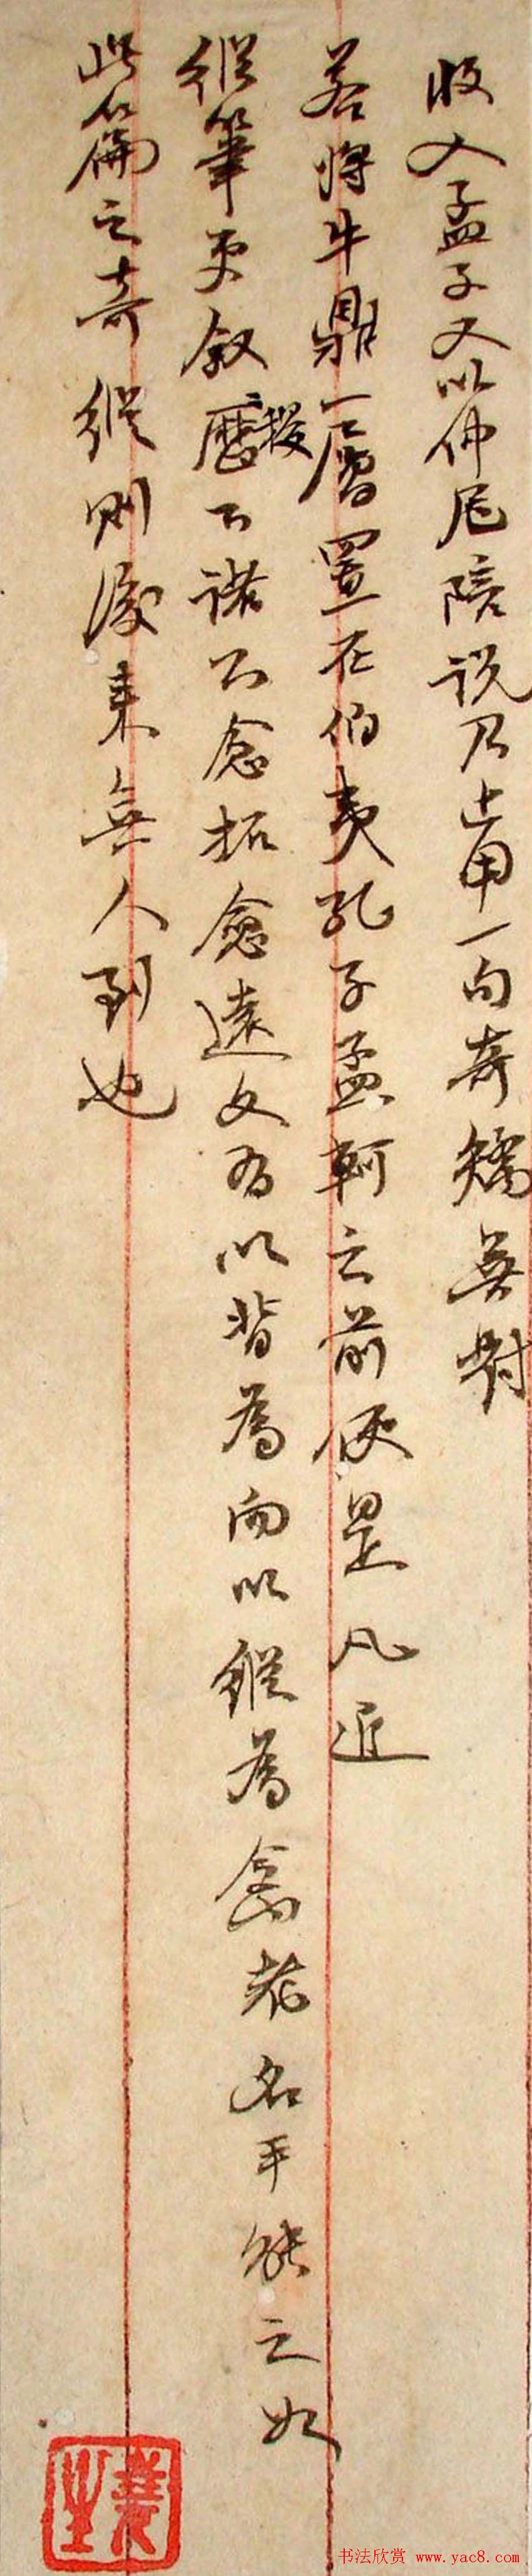 收入孟子又以仲尼陪說乃上甲一句奇矯無對
若將牛鼎一層置在伯夷孔子孟軻之前便是凡近
縱筆更敘歷下諸公愈拓愈遠文有以背為向以縱為禽者名手能之如
此篇之奇縱則後來無人到也
书法欣赏 www.yac8.com